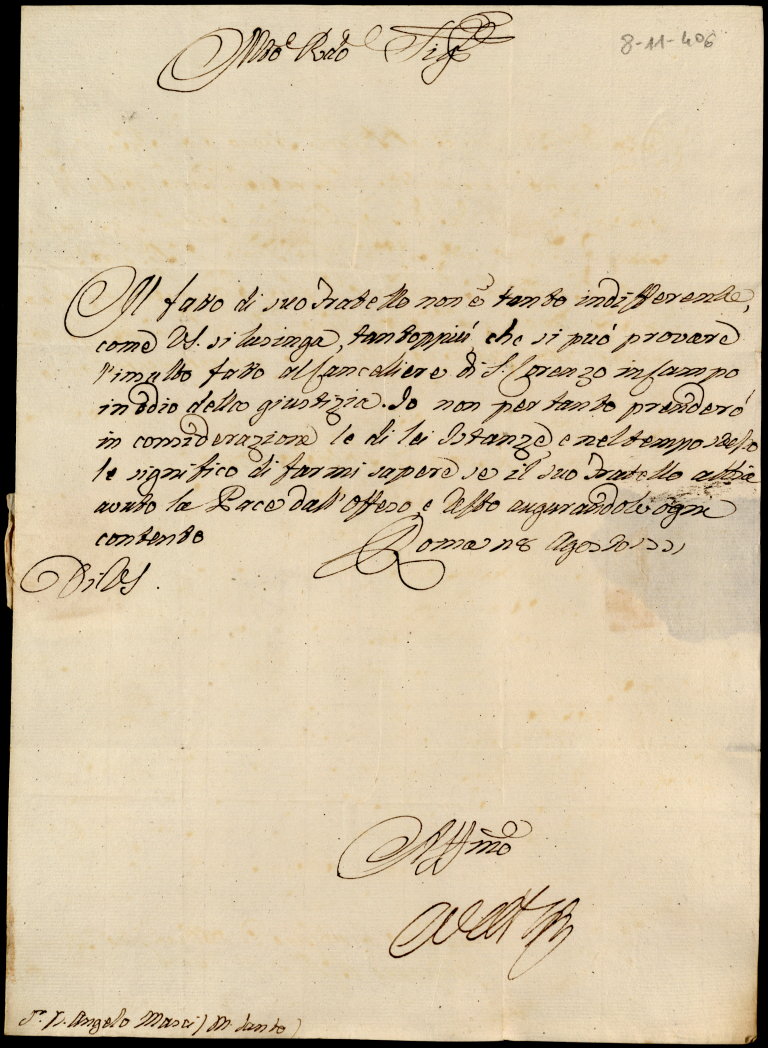 8-11-406
Mto Rdo Sigr
Il fatto di suo Fratello non è tanto indifferente,
come VS. si lusinga, tantoppiù che si può provare
l'insulto fatto al Cancelliere di S. Lorenzo in Campo
in odio della giustizia. Io non per tanto prenderò
in considerazione le di lei Istanze e nel tempo stesso
le significo di farmi sapere se il suo Fratello abbia
avuto la Pace dall'Offeso, e resto augurandole ogni
contento
Roma n8 Agosto
Di VS.
Affmo
Sr. D. Angelo Masci (M. Santo)